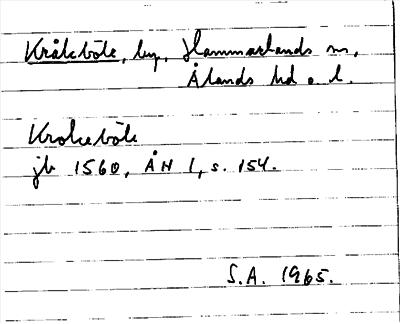 Kråkböle, by, Hammarlands sn,
Ålands hd o. l.
Krokeböle
jb 1560, ÅH 1, s. 154.
S.A. 1965.